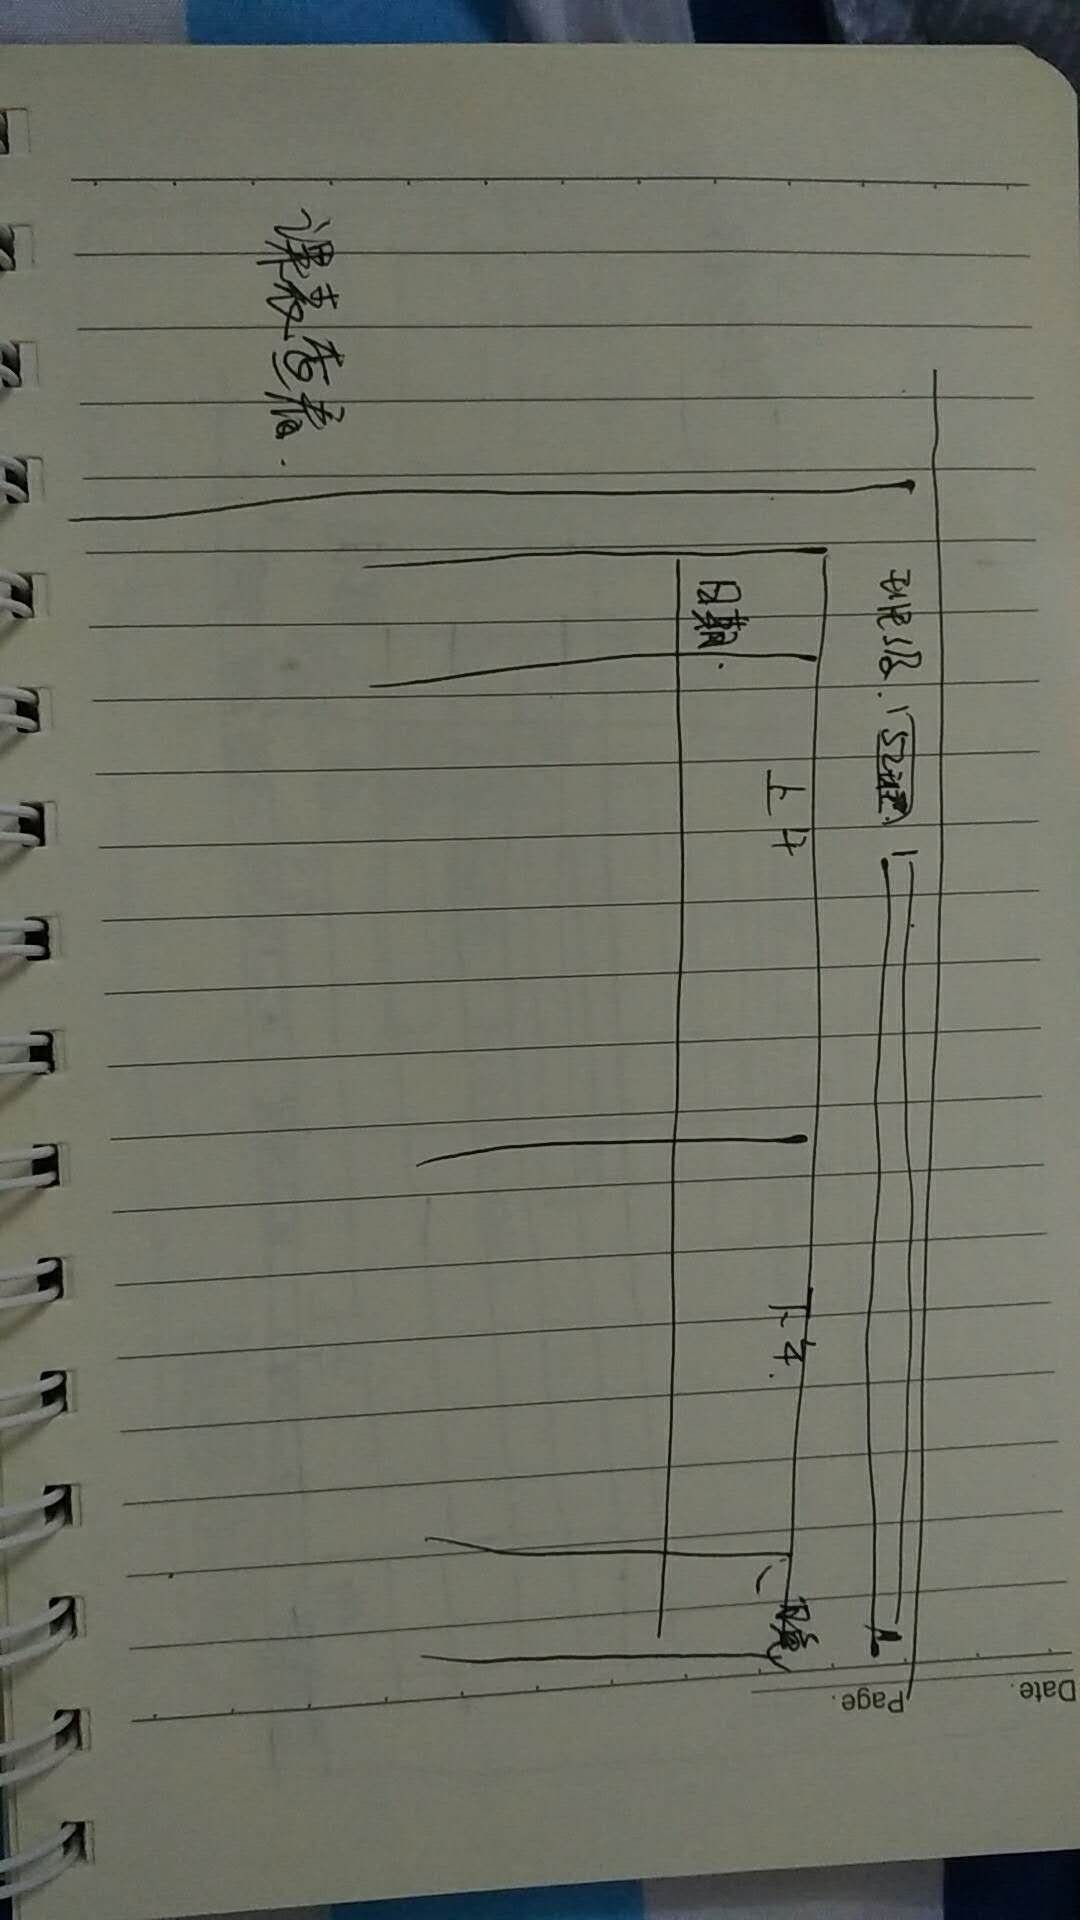 Date.
Page.
班级. 152班
上午
下午.
晚
日期.
课表查看.